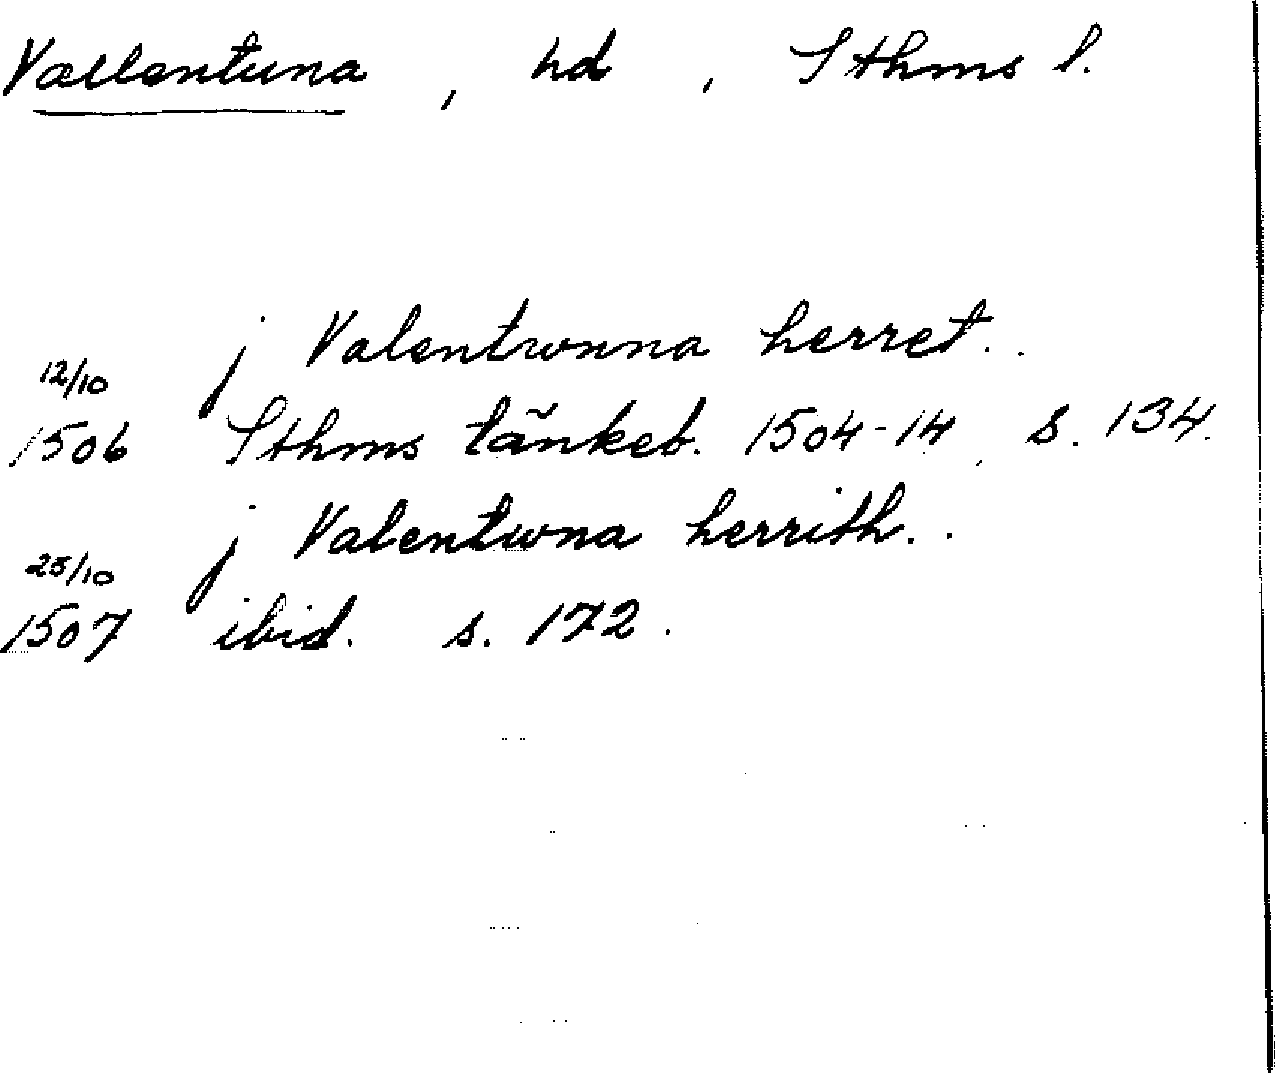 Vallentuna, hd, Sthms l.
j Valentwnna herret..
12/10
1506 Sthms tänkeb. 1504-14, s. 134.
j Valentwna herrith..
25/10
1507 ibid. s. 172.